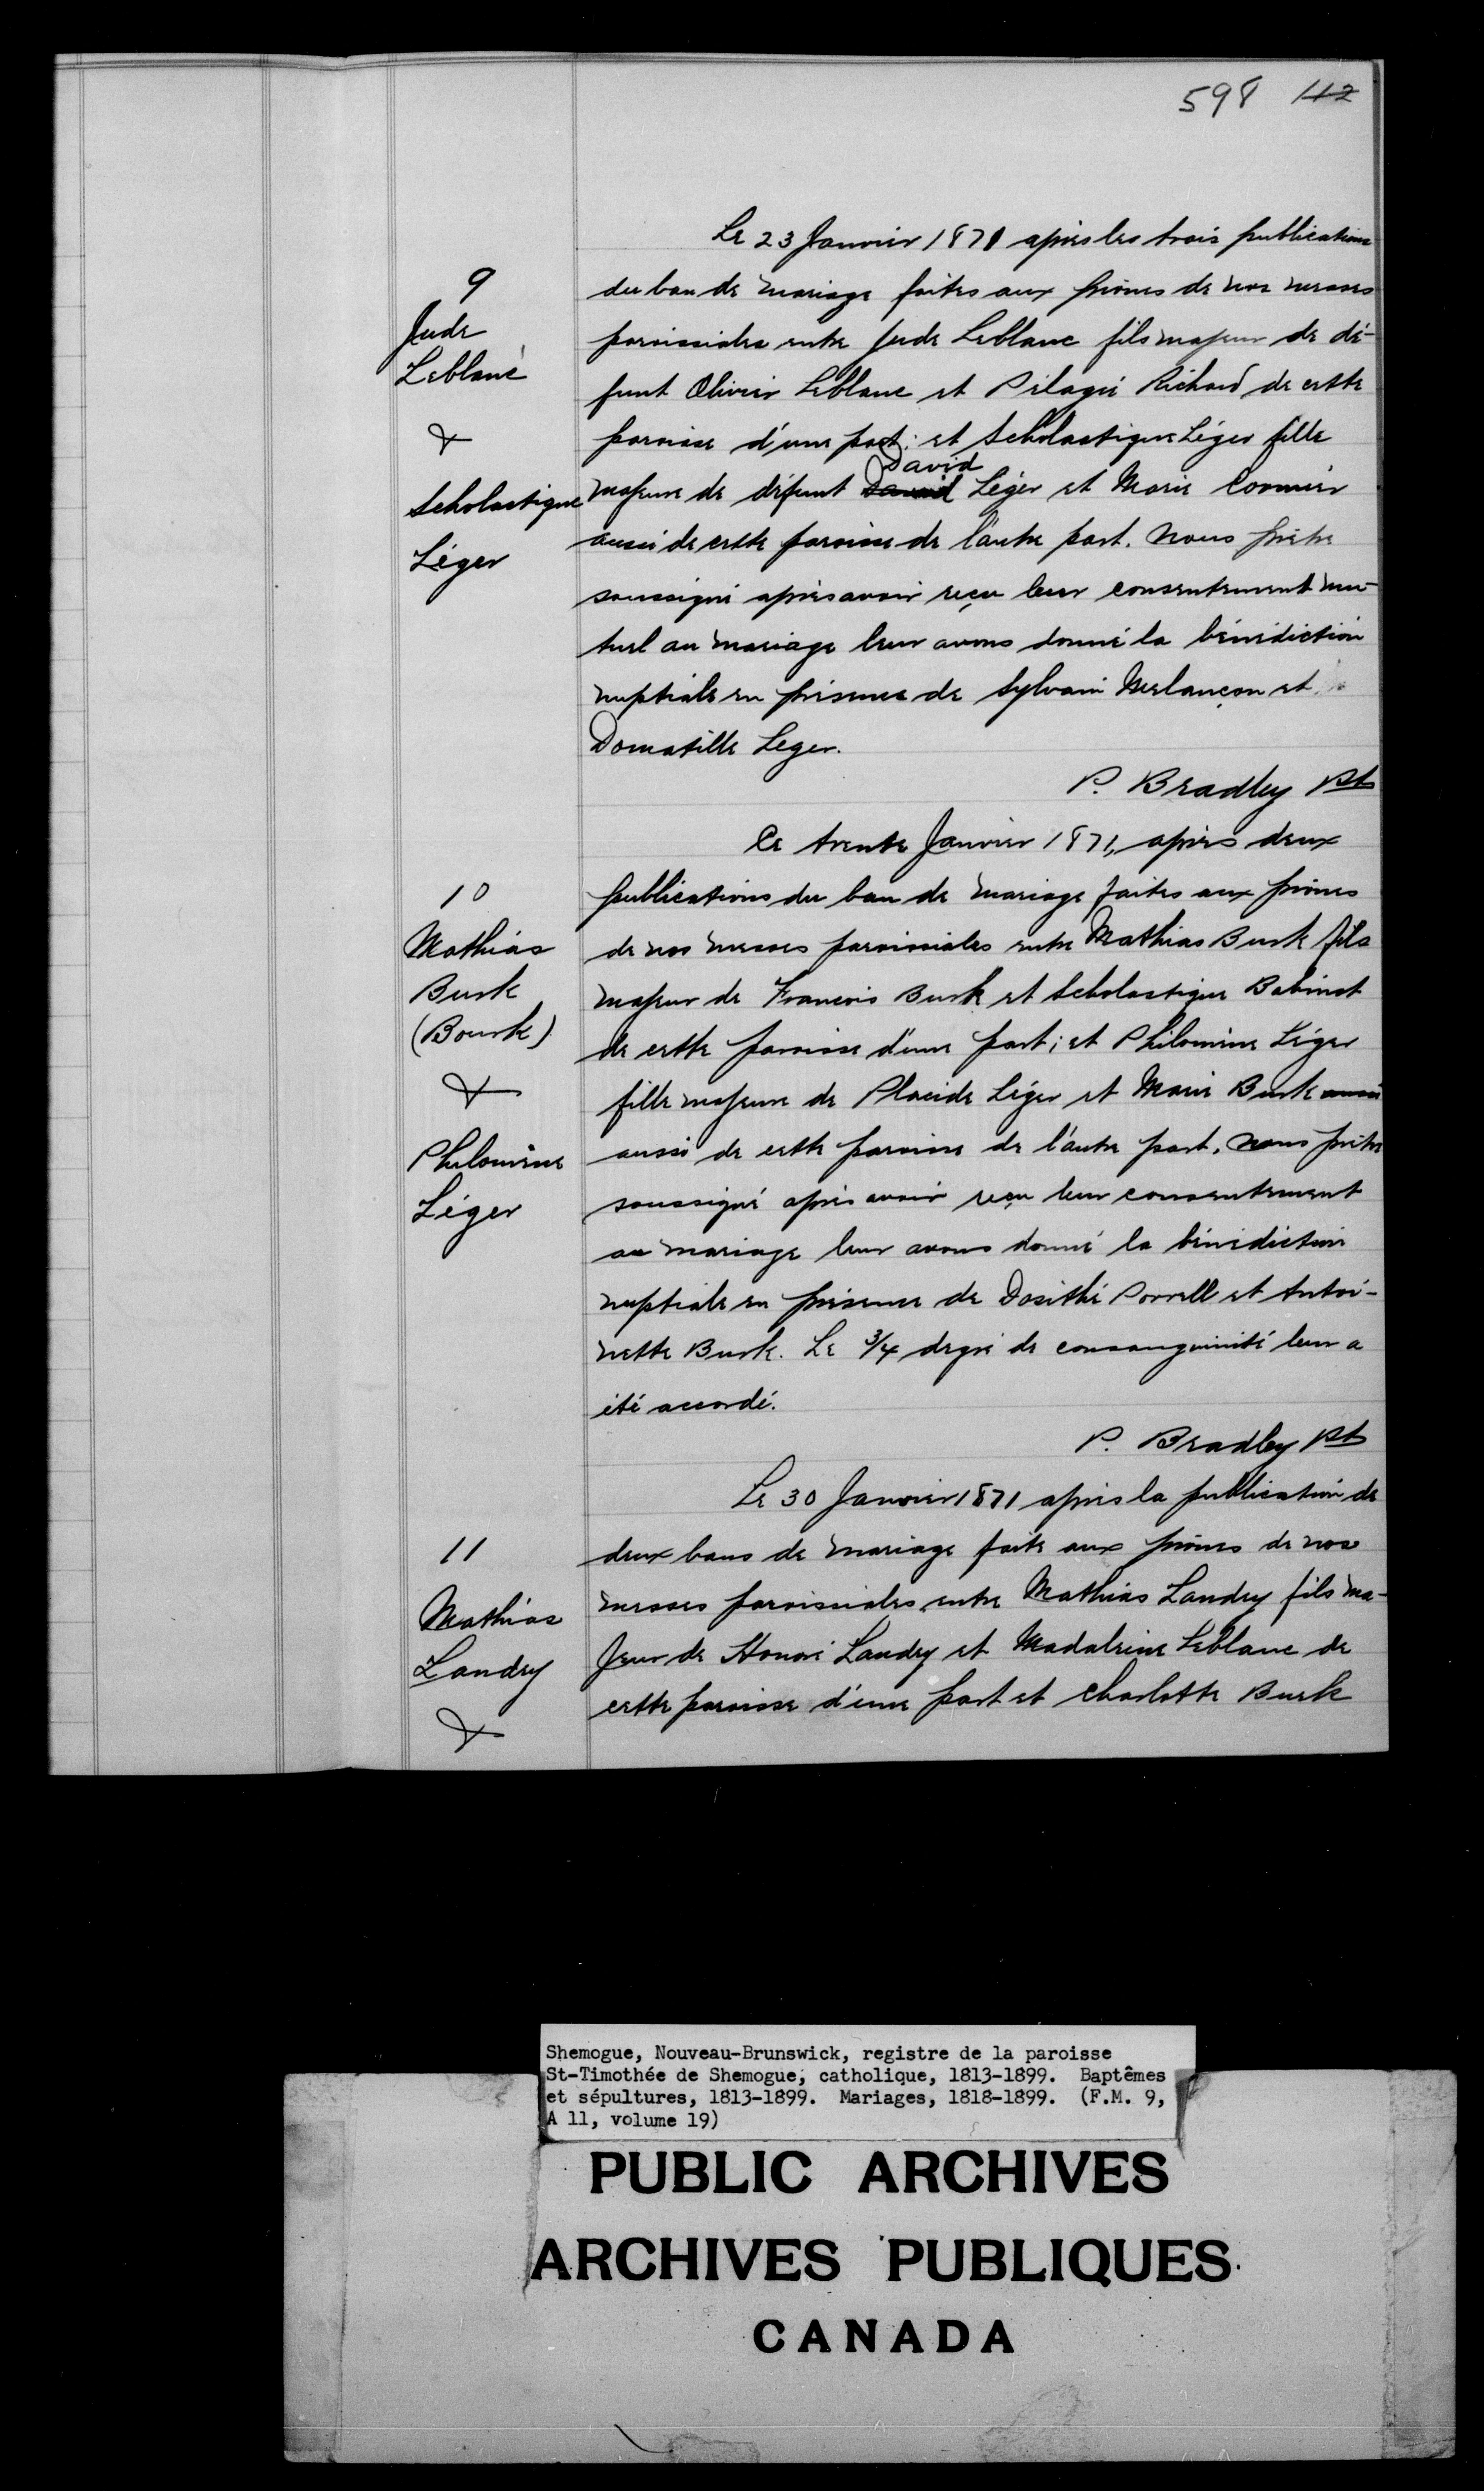 598 112
Le 23 Janvier 1871 après les trois publications
9
du ban de mariage faites aux prônes de nos messes
Jude
paroissiales entre Jude Leblanc fils majeur de dé-
Leblanc
funt Olivier Leblanc et Pélagie Richard de cette
&
paroisse d'une part; et Scholastique Léger fille
David
Scholastique
majeure de défunt David Léger et Marie Cormier
Léger
aussi de cette paroisse de l'autre part. Nous prêtre
soussigné après avoir reçu leur consentement mu-
tuel au mariage leur avons donné la bénédiction
nuptiale en présence de Sylvain Melançon et
Domatille Leger.
P. Bradley Pt
Ce trente Janvier 1871, après deux
10
publications du ban de mariage faites aux prônes
Mathias
de nos messes paroissiales entre Mathias Burk fils
Burk
majeur de François Burk et Scholastique Babinot
(Bourk)
de cette paroisse d'une part; et Philomène Léger
&
fille majeure de Placide Léger et Marie Burk aussi
Philomène
aussi de cette paroisse de l'autre part, nous prêtre
Léger
soussigné après avoir reçu leur consentement
au mariage leur avons donné la bénédiction
nuptiale en présence de Dosithé Porrell et Antoi-
nette Burk. Le 3/4 degré de consanguinité leur a
été accordé.
P. Bradley Pt
Le 30 Janvier 1871 après la publication de
11
deux bans de mariage faite aux prônes de nos
Mathias
messes paroissiales, entre Mathias Landry fils ma-
Landry
jeur de Honoré Landry et Madaleine Leblanc de
&
cette paroisse d'une part et Charlotte Burk
Shemogue, Nouveau-Brunswick, registre de la paroisse
St-Timothée de Shemogue, catholique, 1813-1899. Baptêmes
et sépultures, 1813-1899. Mariages, 1818-1899. (F.M. 9,
A 11, volume 19)
PUBLIC ARCHIVES
ARCHIVES PUBLIQUES
CANADA